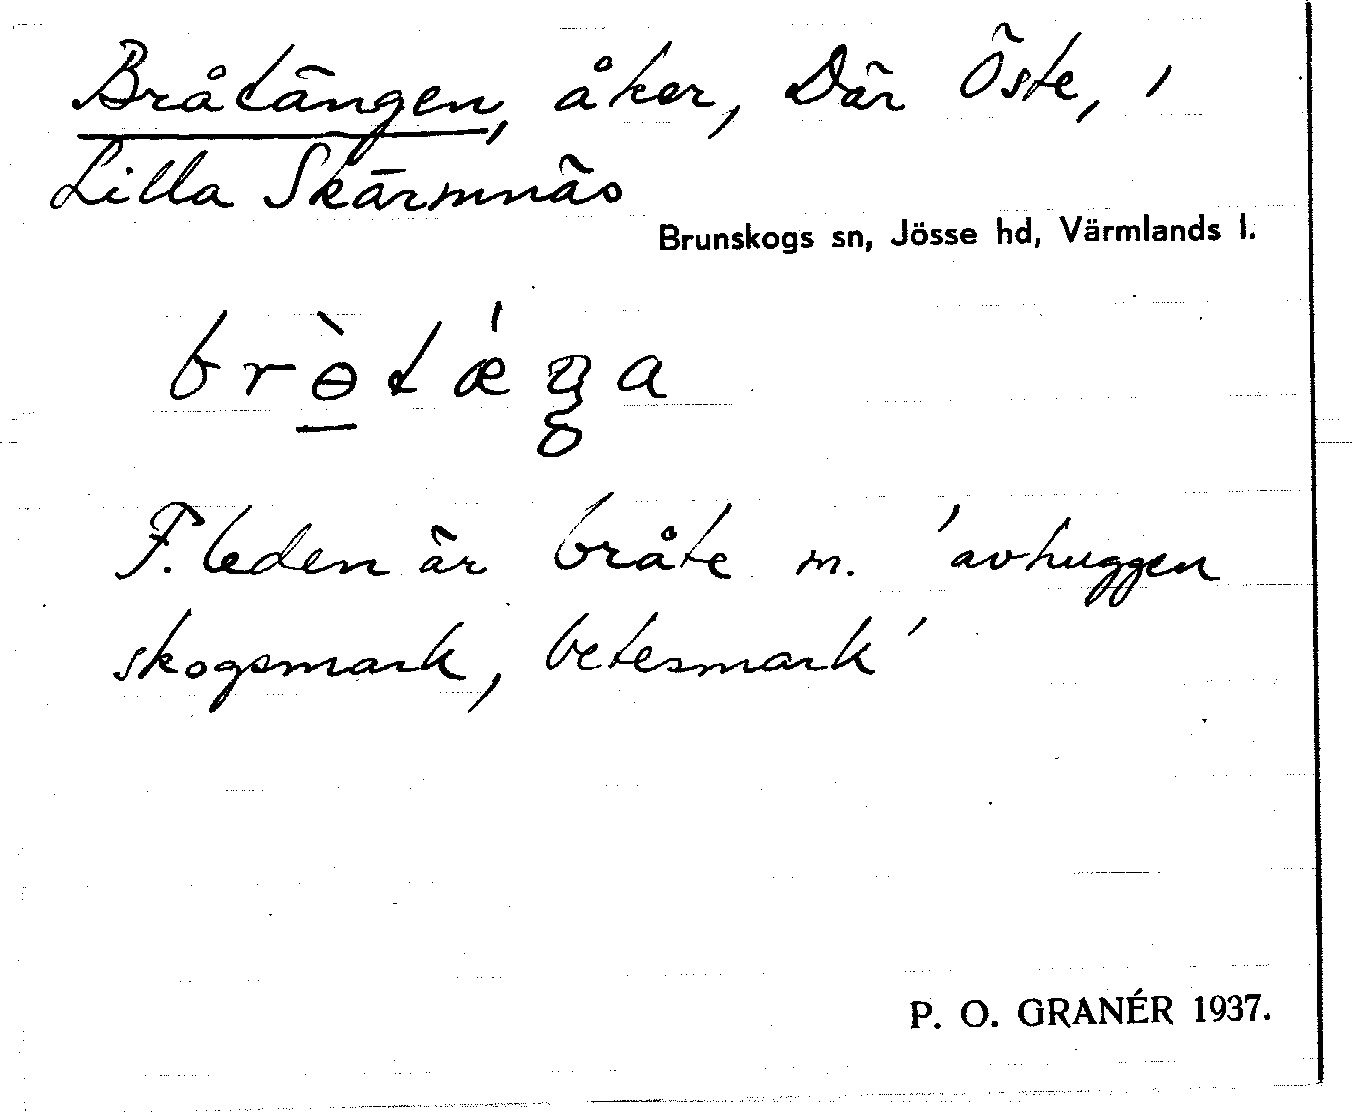 Bråtängen, åker, Där Öste, i
Lilla Skärmnäs
Brunskogs sn, Jösse hd, Värmlands l.
F. leden är bråte m. 'avhuggen
skogsmark, betesmark'
P. O. GRANÉR 1937.